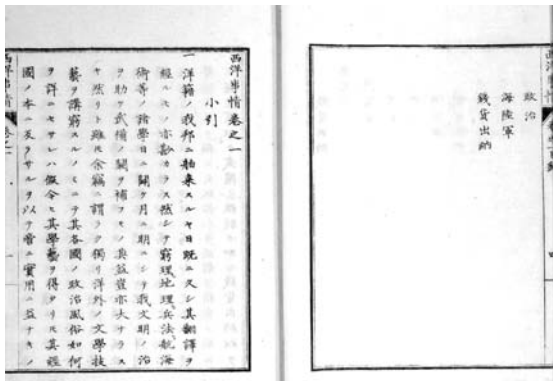 政治
海陸軍
錢貨出納
西洋事情卷之一
小引
一 洋籍ノ我邦ニ舶來スルヤ日既ニ久シ其翻譯ヲ
經ルモノ亦尠カラス然シテ窮理地理兵法航海
術等ノ諸學日ニ闢ケ月ニ明ニシテ我文明ノ治
ヲ助ケ武備ノ闕ヲ補フモノ其益豈亦大ナラス
ヤ然リト雖𪜈余竊ニ謂ラク獨リ洋外ノ文學技
藝ヲ講窮スルノミニテ其各國ノ政治風俗如何
ヲ詳ニセサレハ假令ヒ其學藝ヲ得タリ𪜈其經
國ノ本ニ反ラサルヲ以テ啻ニ實用ニ益ナキノ
西洋事情 卷之一 一